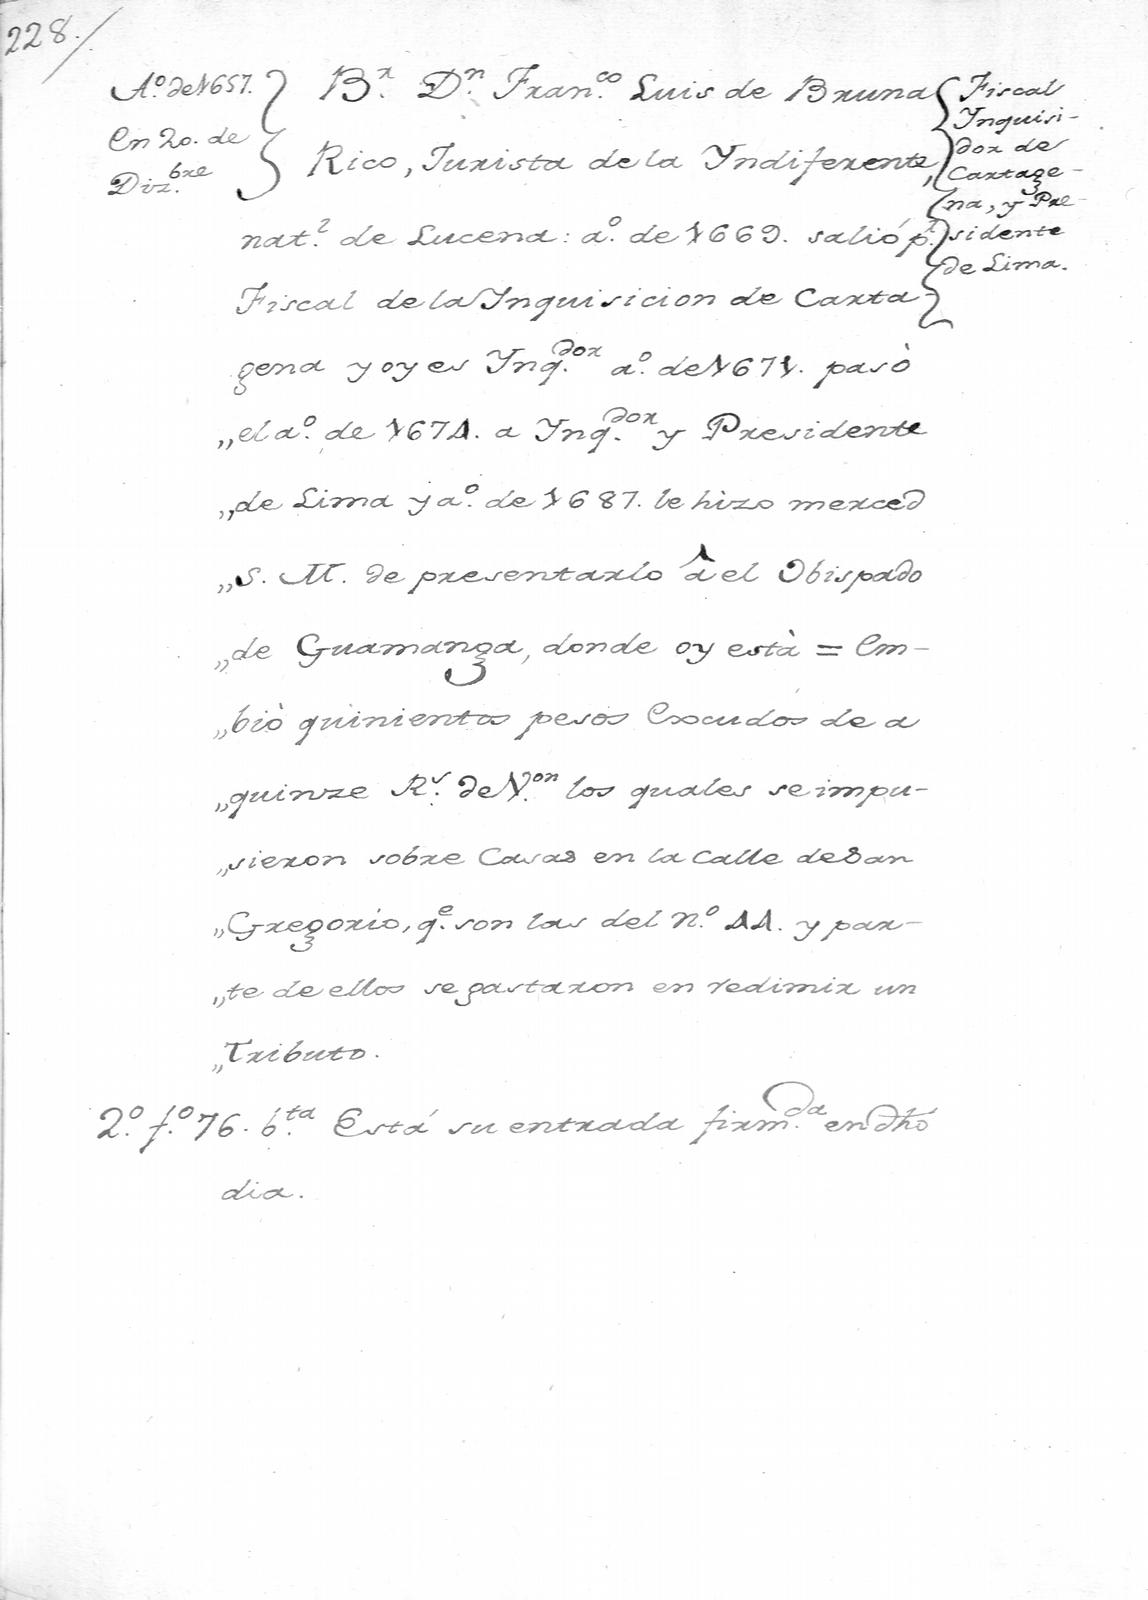 228.
Aº. de 1657.
en 20. de
Diz.bre
Br. Dn. Fran.co Luis de Bruna
Rico, Jurista de la Yndiferente,
nat.l de Lucena: aº. de 1669. salió pr.
Fiscal de la Ynquisicion de Carta
gena y oy es Ynq.dor aº. de 1671. pasò
„el aº. de 1674. a Ynq.dor y Presidente
„de Lima y aº. de 1687. le hizo merced
„S. M. de presentarlo â el Obispado
„de Guamanga, donde oy està = em-
„biò quinientos pesos escudos de a
„quinze Rs. de Von. los quales se impu-
„sieron sobre Casas en la Calle de San
„Gregorio, q.e son las del nº. 44. y par-
„te de ellos se gastaron en redimir un
„Tributo.
2º. fº. 76. b.ta Está su entrada firm.da en dho
dia.
Fiscal
Ynquisi-
dor de
Cartage-
na, y Pre-
sidente
de Lima.